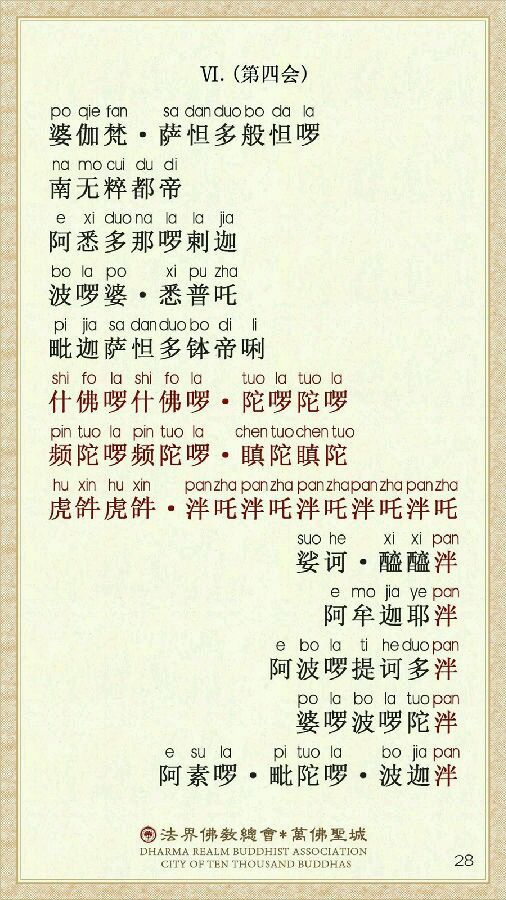 VI. (第四会)
po qie fan sa dan duo bo da la
婆伽梵·萨怛多般怛啰
na mo cui du di
南无粹都帝
e xi duo na la la jia
阿悉多那啰剌迦
bo la po xi pu zha
波啰婆·悉普吒
pi jia sa dan duo bo di li
毗迦萨怛多钵帝唎
shi fo la shi fo la tuo la tuo la
什佛啰什佛啰·陀啰陀啰
pin tuo la pin tuo la chen tuo chen tuo
频陀啰频陀啰·瞋陀瞋陀
hu xin hu xin pan zha pan zha pan zha pan zha pan zha
虎𤙖虎𤙖·泮吒泮吒泮吒泮吒泮吒
suo he xi xi pan
娑诃·醯醯泮
e mo jia ye pan
阿牟迦耶泮
e bo la ti he duo pan
阿波啰提诃多泮
po la bo la tuo pan
婆啰波啰陀泮
e su la pi tuo la bo jia pan
阿素啰·毗陀啰·波迦泮
法界佛教總會*萬佛聖城
DHARMA REALM BUDDHIST ASSOCIATION
CITY OF TEN THOUSAND BUDDHAS
28